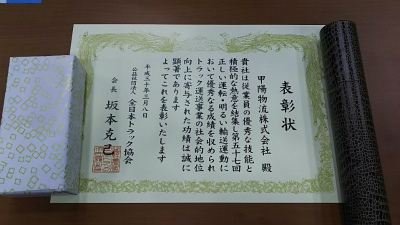 表彰状
甲陽物流株式会社 殿
貴社は従業員の優秀な技能と
積極的な熱意を結集し第五十七回
正しい運転・明るい輸送運動に
おいて優秀なる成績を収められ
トラック運送事業の社会的地位
向上に寄与された功績は誠に
顕著であります
よってこれを表彰いたします
平成三十年三月八日
公益社団法人 全日本トラック協会
会長 坂本克己